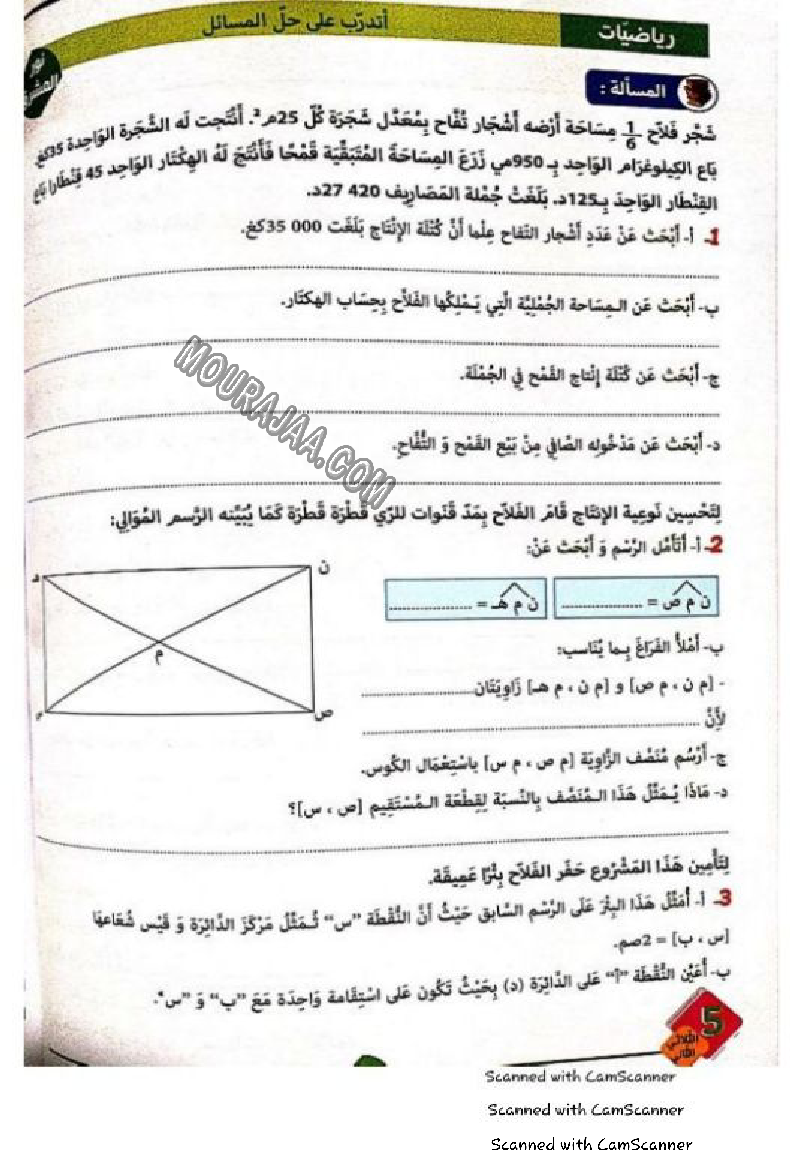 رياضيّات
أتدرّب على حلّ المسائل
المسألة :
شَجّر فَلاّح 1/6 مِسَاحَة أَرْضه أَشْجَار تُفَّاح بِمُعَدَّل شَجَرَة كُلّ 25م². أَنْتَجت لَه الشَّجَرة الوَاحِدة 35كغ.
بَاع الكِيلوغرَام الوَاحِد بِـ 950مي زَرَعَ المِسَاحَةَ المُتَبَقِّيَة قَمْحًا فَأَنْتَجَ لَهُ الهِكْتَار الوَاحِد 45 قِنْطَارا بَاعَ
القِنْطَار الوَاحِدَ بِـ125د. بَلَغَتْ جُمْلة المَصَارِيف 420 27د.
1ـ أ- أَبْحَث عَنْ عَدَدِ أَشْجار التفاح عِلْما أَنَّ كُتْلَة الإِنْتَاج بَلَغَت 000 35كغ.
ب- أَبْحَث عَن المِسَاحة الجُمْلِيَّة الَّتِي يَمْلِكُها الفَلاَّح بِحِسَاب الهكتَار.
ج- أَبْحَث عَن كُتْلَة إِنْتاج القَمْح فِي الجُمْلَة.
د- أَبْحَث عَن مَدْخُولِه الصَّافِي مِنْ بَيْع القَمْح وَ التُّفَّاحِ.
لِتَحْسِين نَوعِية الإِنتَاج قَامَ الفَلاّح بِمَدّ قَنَوات للرّي قَطْرَة قَطْرَة كَمَا يُبَيِّنه الرَّسم المُوَالِي:
2ـ أ- أَتَأَمَّل الرَّسْم وَ أَبْحَث عَنْ:
ن م ص = ....................
ن م هـ = ....................
د
ن
م
ص
ب- أَمْلأُ الفَرَاغَ بِـما يُنَاسب:
- [م ن ، م ص] و [م ن ، م هـ] زَاوِيَتَان............................
لأَنَّ ............................
ج- أَرْسُم مُنَصِّف الزَّاوِيَة [م ص ، م س] باسْتِعْمَال الكُوس.
د- مَاذَا يُمَثِّلُ هَذَا الـمُنَصِّف بِالنِّسبَة لِقِطْعَة الـمُسْتَقِيم [ص ، س]؟
لِتَأْمِين هَذَا المَشْرُوع حَفَر الفَلاّح بِئْرًا عَمِيقَة.
3ـ أ- أُمَثِّلُ هَذَا البِئْرَ عَلَى الرَّسْم السَّابق حَيْثُ أَنَّ النُّقْطَة "س" تُـمَثِّلُ مَرْكَزَ الدَّائِرَة وَ قَيْس شُعَاعهَا
[س ، ب] = 2صم.
ب- أُعَيِّن النُّقْطَة "أ" عَلى الدَّائِرَة (د) بِحَيْثُ تَكُون عَلى اسْتِقَامة وَاحِدَة مَعَ "ب" وَ "س".
5
الثلاثي
الثاني
MOURAJAA.COM
Scanned with CamScanner
Scanned with CamScanner
Scanned with CamScanner